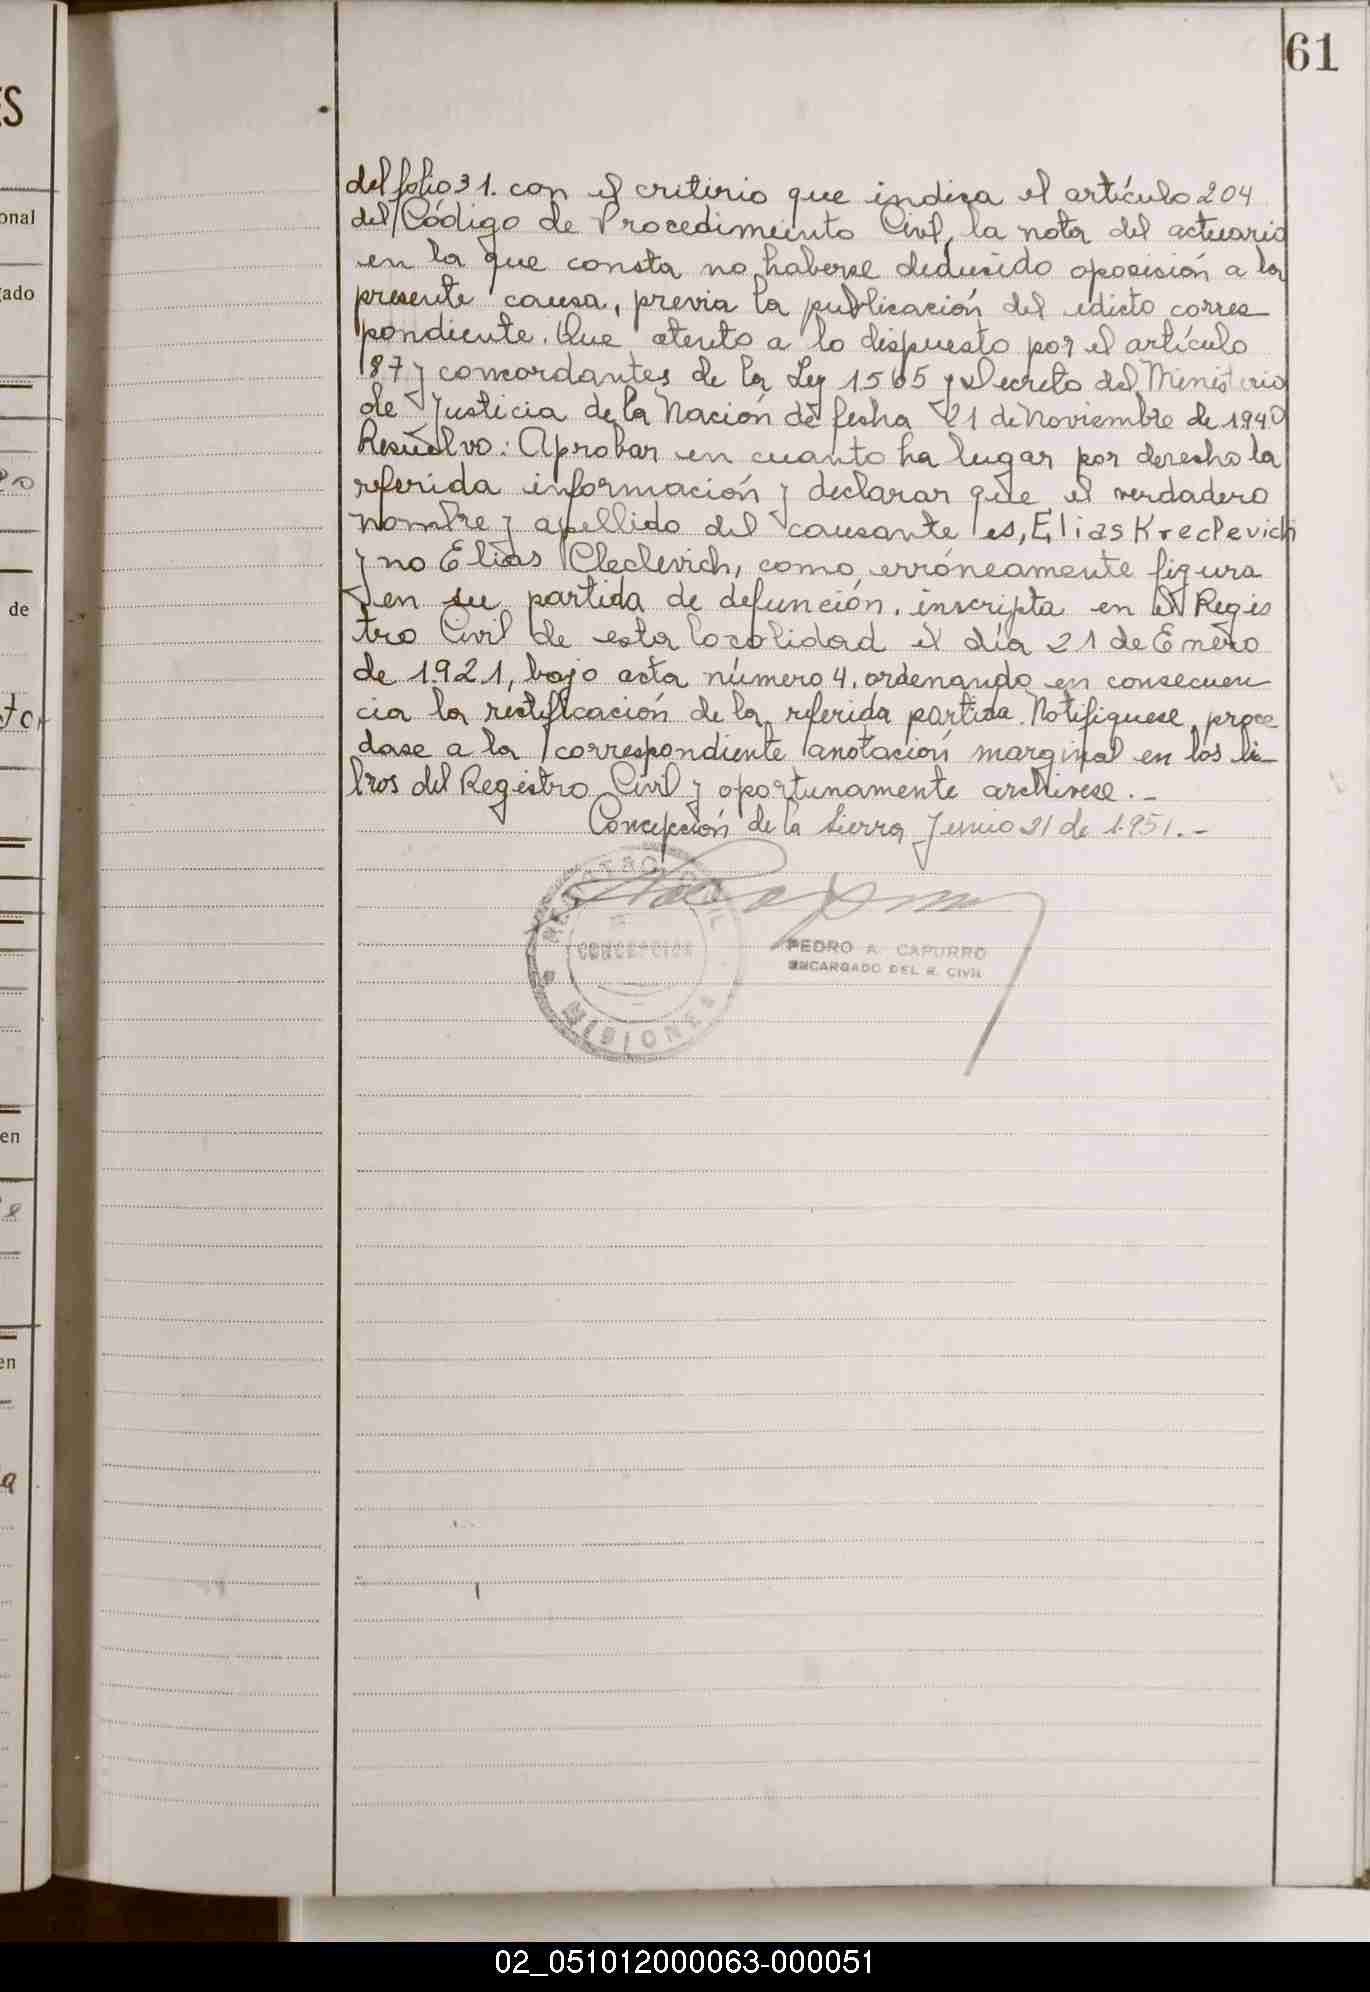 61
ES
onal
gado
de
to,
en
en
del folio 31. con el criterio que indica el artículo 204
del Código de Procedimiento Civil, la nota del actuario
en la que consta no haberse deducido oposición a la
presente causa, previa la publicación del edicto corres
pondiente. Que atento a lo dispuesto por el artículo
87 y concordantes de la Ley 1565 y Decreto del Ministerio
de Justicia de la Nación de fecha 21 de Noviembre de 1940
Resuelvo: Aprobar en cuanto ha lugar por derecho la
referida información y declarar que el verdadero
nombre y apellido del causante es, Elias Kreclevich
y no Elias Cleclevich, como erróneamente figura
en su partida de defunción, inscripta en el Regis
tro Civil de esta localidad el día 21 de Enero
de 1.921, bajo acta número 4, ordenando en consecuen
cia la rectificación de la referida partida. Notifiquese, proce
dase a la correspondiente anotación marginal en los li-
bros del Registro Civil y oportunamente archivese.-
Concepción de la Sierra Junio 21 de 1.951.-
REGISTRO CIVIL
CONCEPCION
MISIONES
PEDRO A. CAPURRO
ENCARGADO DEL R. CIVIL
02_051012000063-000051